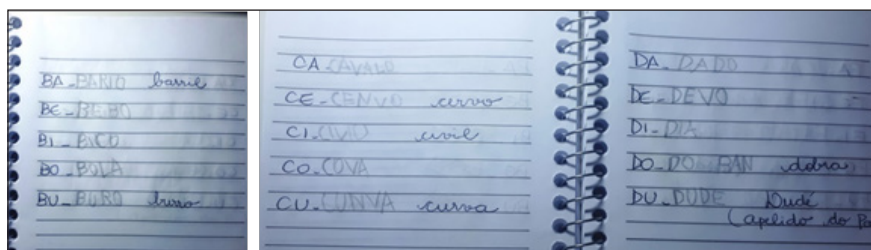 BA_BARIO barril
BE_BEBO
BI_BICO
BO_BOLA
BU_BURO burro
CA_CAVALO
CE_CENVO cervo
CI_CIVIO civil
CO_COVA
CU_CUNVA curva
DA_DADO
DE_DEVO
DI_DIA
DO_DO BAN dobra
DU_DUDE Dudé
(apelido do Pa